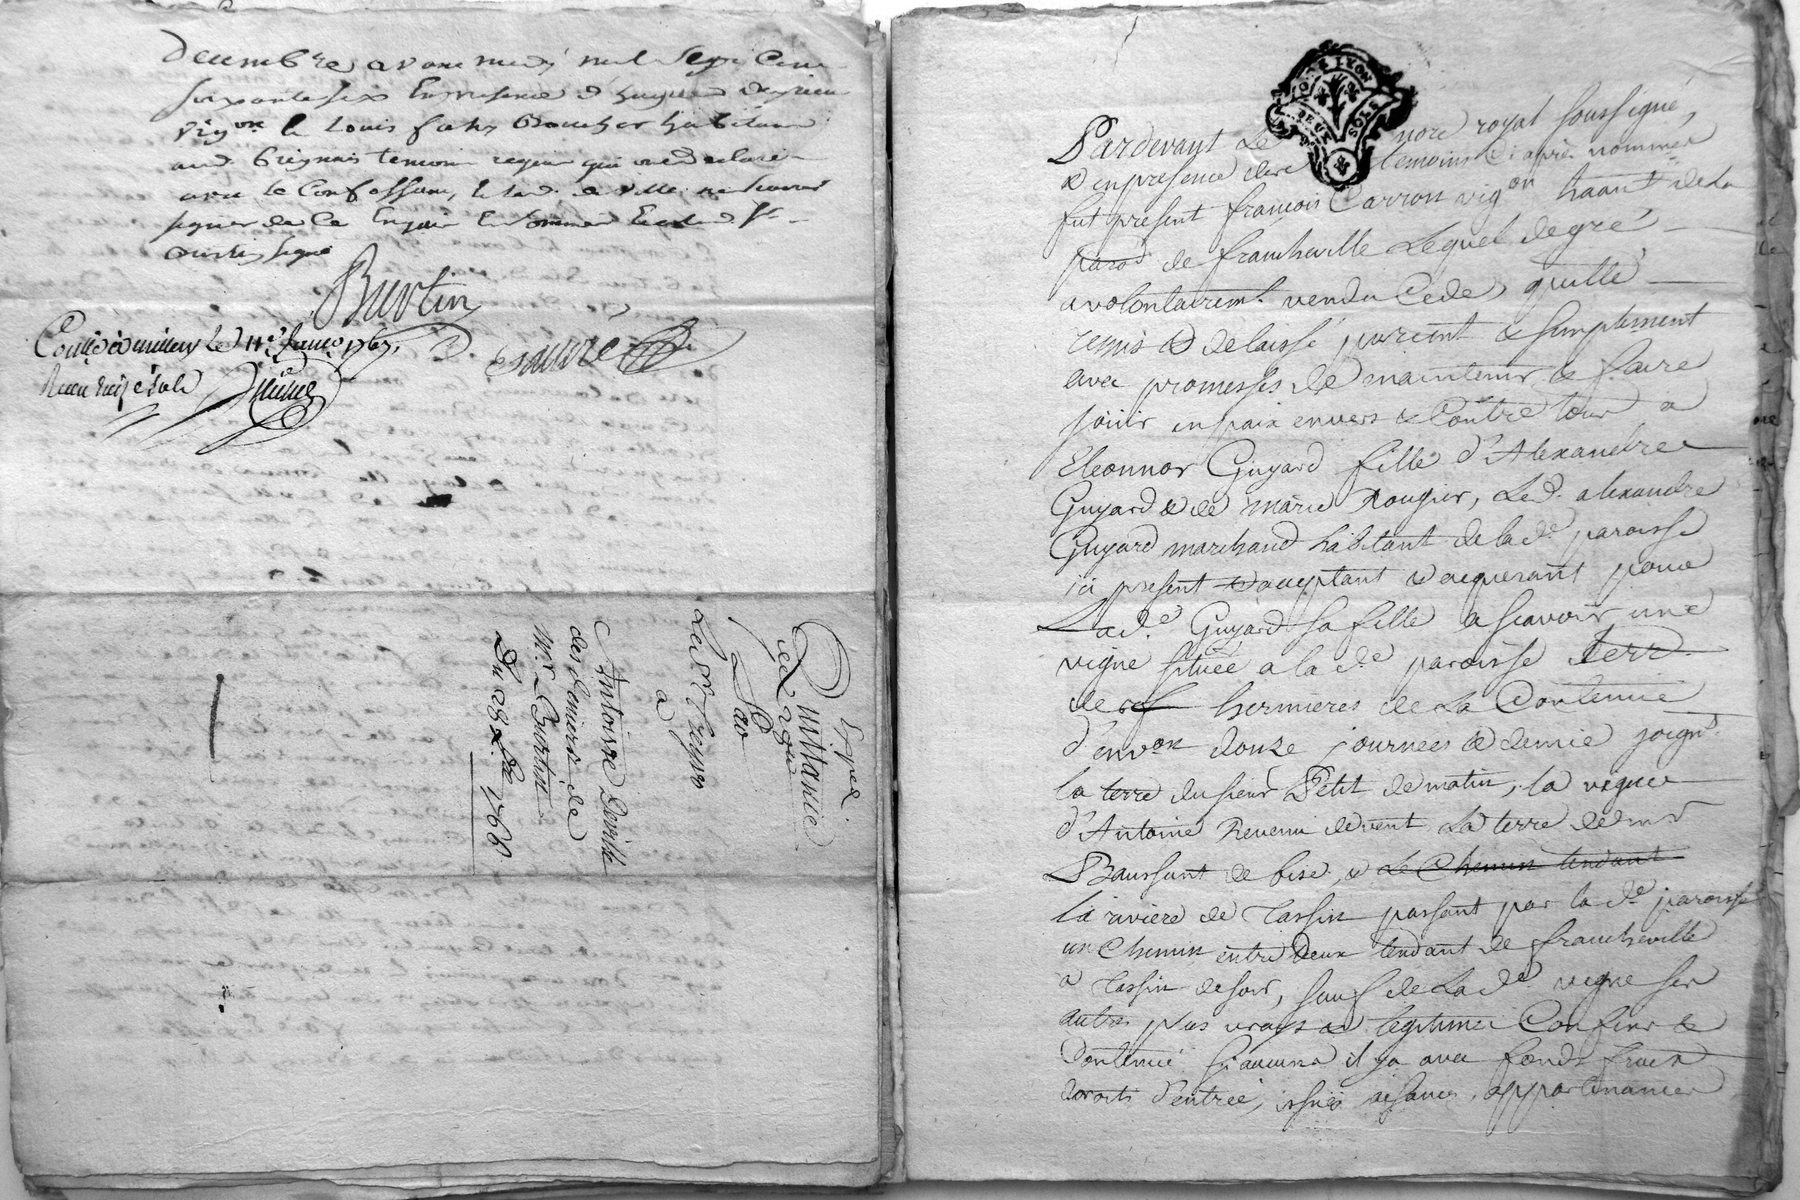 decembre avant midy mil sept cent
soixante six En presence d
vig.on & Louis habitant
aud. Brignais temoins requis qui ont declaré
avec le Confesseur, & lad. de ville ne sçavoir
signer de Ce Enquis
signé
Burtin
Con.lé à le 11.e Janv. 1767.
Reçu sols
Exped.
Quittance
de 280
La v.e
à
Antoine Deville
des deniers de
M.r Burtin
Du 28 X.bre 1766
GEN DE LYON
DEUX SOLS
Pardevant Le nore royal soussigné,
& en presence des temoins Ci après nommés
fut present françois Carron vig.on haant de La
paroi de francheville Lequel de gré
a volontairem.t vendu Cede, quitté
remis & delaissé purem.t & simplement
avec promesses de maintenir & faire
jouir en paix envers & Contre tous a
Eleonnor Guyard fille d'Alexandre
Guyard & de marie Rougier, Led. alexandre
Guyard marchand habitant de lad.e paroisse
ici present & acceptant & acquerant pour
Lad.e Guyard sa fille a scavoir une
vigne située a la d.e paroisse terr.
de hermieres de La Contenue
d'env.on douze journées & demie joign.t
la terre du sieur Petit de matin, la vigne
d'Antoine Revenu de vent La terre de
Baussant de bise, & Le Chemin tendant
la riviere de Tassin passant par la d.e paroisse
un Chemin entre Deux tendant de francheville
a Tassin de soir, sauf de La d.e vigne ses
autres plus vrays & legitimes Confins &
Contenue si aucuns il y a avec fonds fruits
droits d'entrée, issues aisances, appartenances